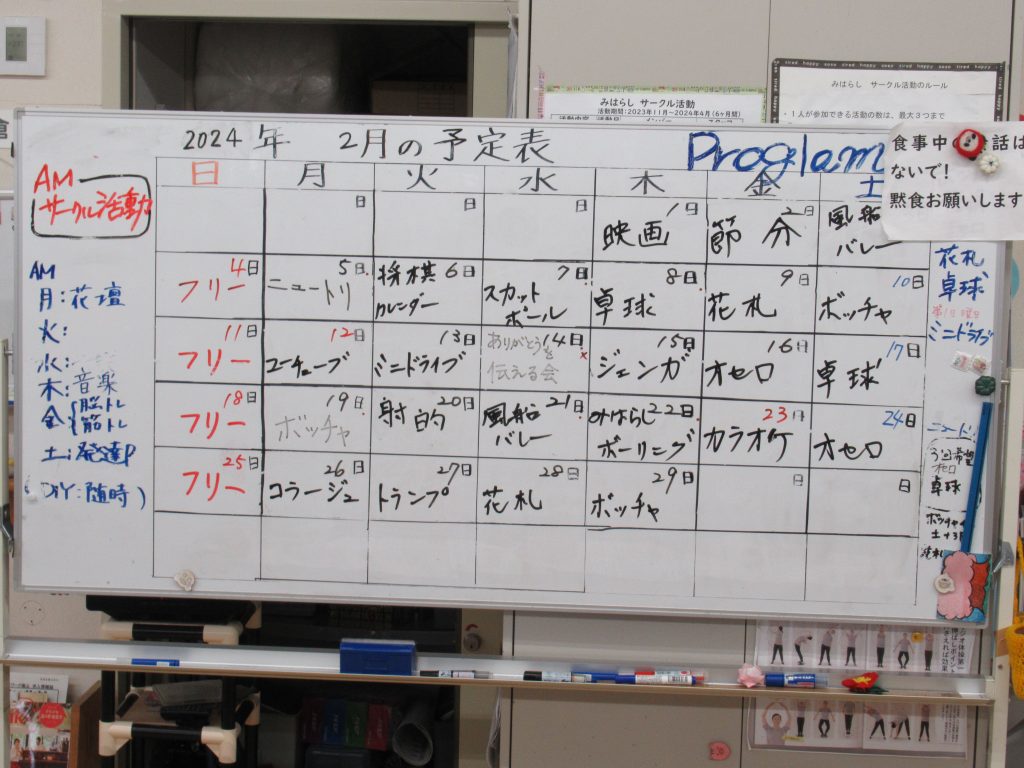 みはらし サークル活動
活動期間:2023年11月~2024年4月(6ヶ月間)
みはらし サークル活動のルール
・1人が参加できる活動の数は、最大3つまで
2024年 2月の予定表
Proglam
食事中の会話は
ないで!
黙食お願いします
AM
サークル活動
AM
月:花壇
火:
水:
木:音楽
金:脳トレ
筋トレ
土:発達P
(DIY:随時)
日 月 火 水 木 金 土
日 日 日 1日 2日
映画 節分 風船バレー
4日 5日 6日 7日 8日 9日 10日
フリー ニュートリ 将棋カレンダー スカットボール 卓球 花札 ボッチャ
11日 12日 13日 14日 15日 16日 17日
フリー ユーチューブ ミニドライブ ありがとうを伝える会 ジェンガ オセロ 卓球
18日 19日 20日 21日 22日 23日 24日
フリー ボッチャ 射的 風船バレー みはらしボーリング カラオケ オセロ
25日 26日 27日 28日 29日 日 日
フリー コラージュ トランプ 花札 ボッチャ
花札
卓球
ミニドライブ
ニュートリ
オセロ
卓球